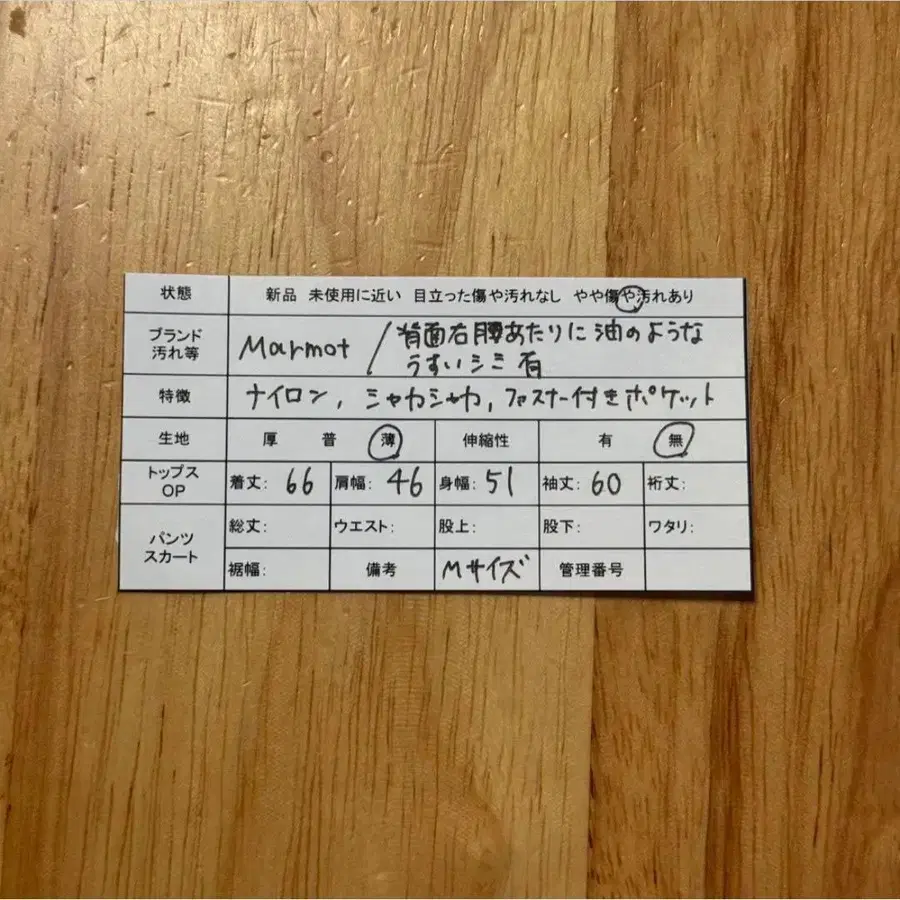 状態 新品 未使用に近い 目立った傷や汚れなし やや傷や汚れあり
ブランド 汚れ等 Marmot / 背面右腰あたりに油のような
うすいシミ有
特徴 ナイロン, シャカシャカ, ファスナー付きポケット
生地 厚 普 薄 伸縮性 有 無
トップス OP 着丈: 66 肩幅: 46 身幅: 51 袖丈: 60 裄丈:
パンツ スカート 総丈: ウエスト: 股上: 股下: ワタリ:
裾幅: 備考 Mサイズ 管理番号